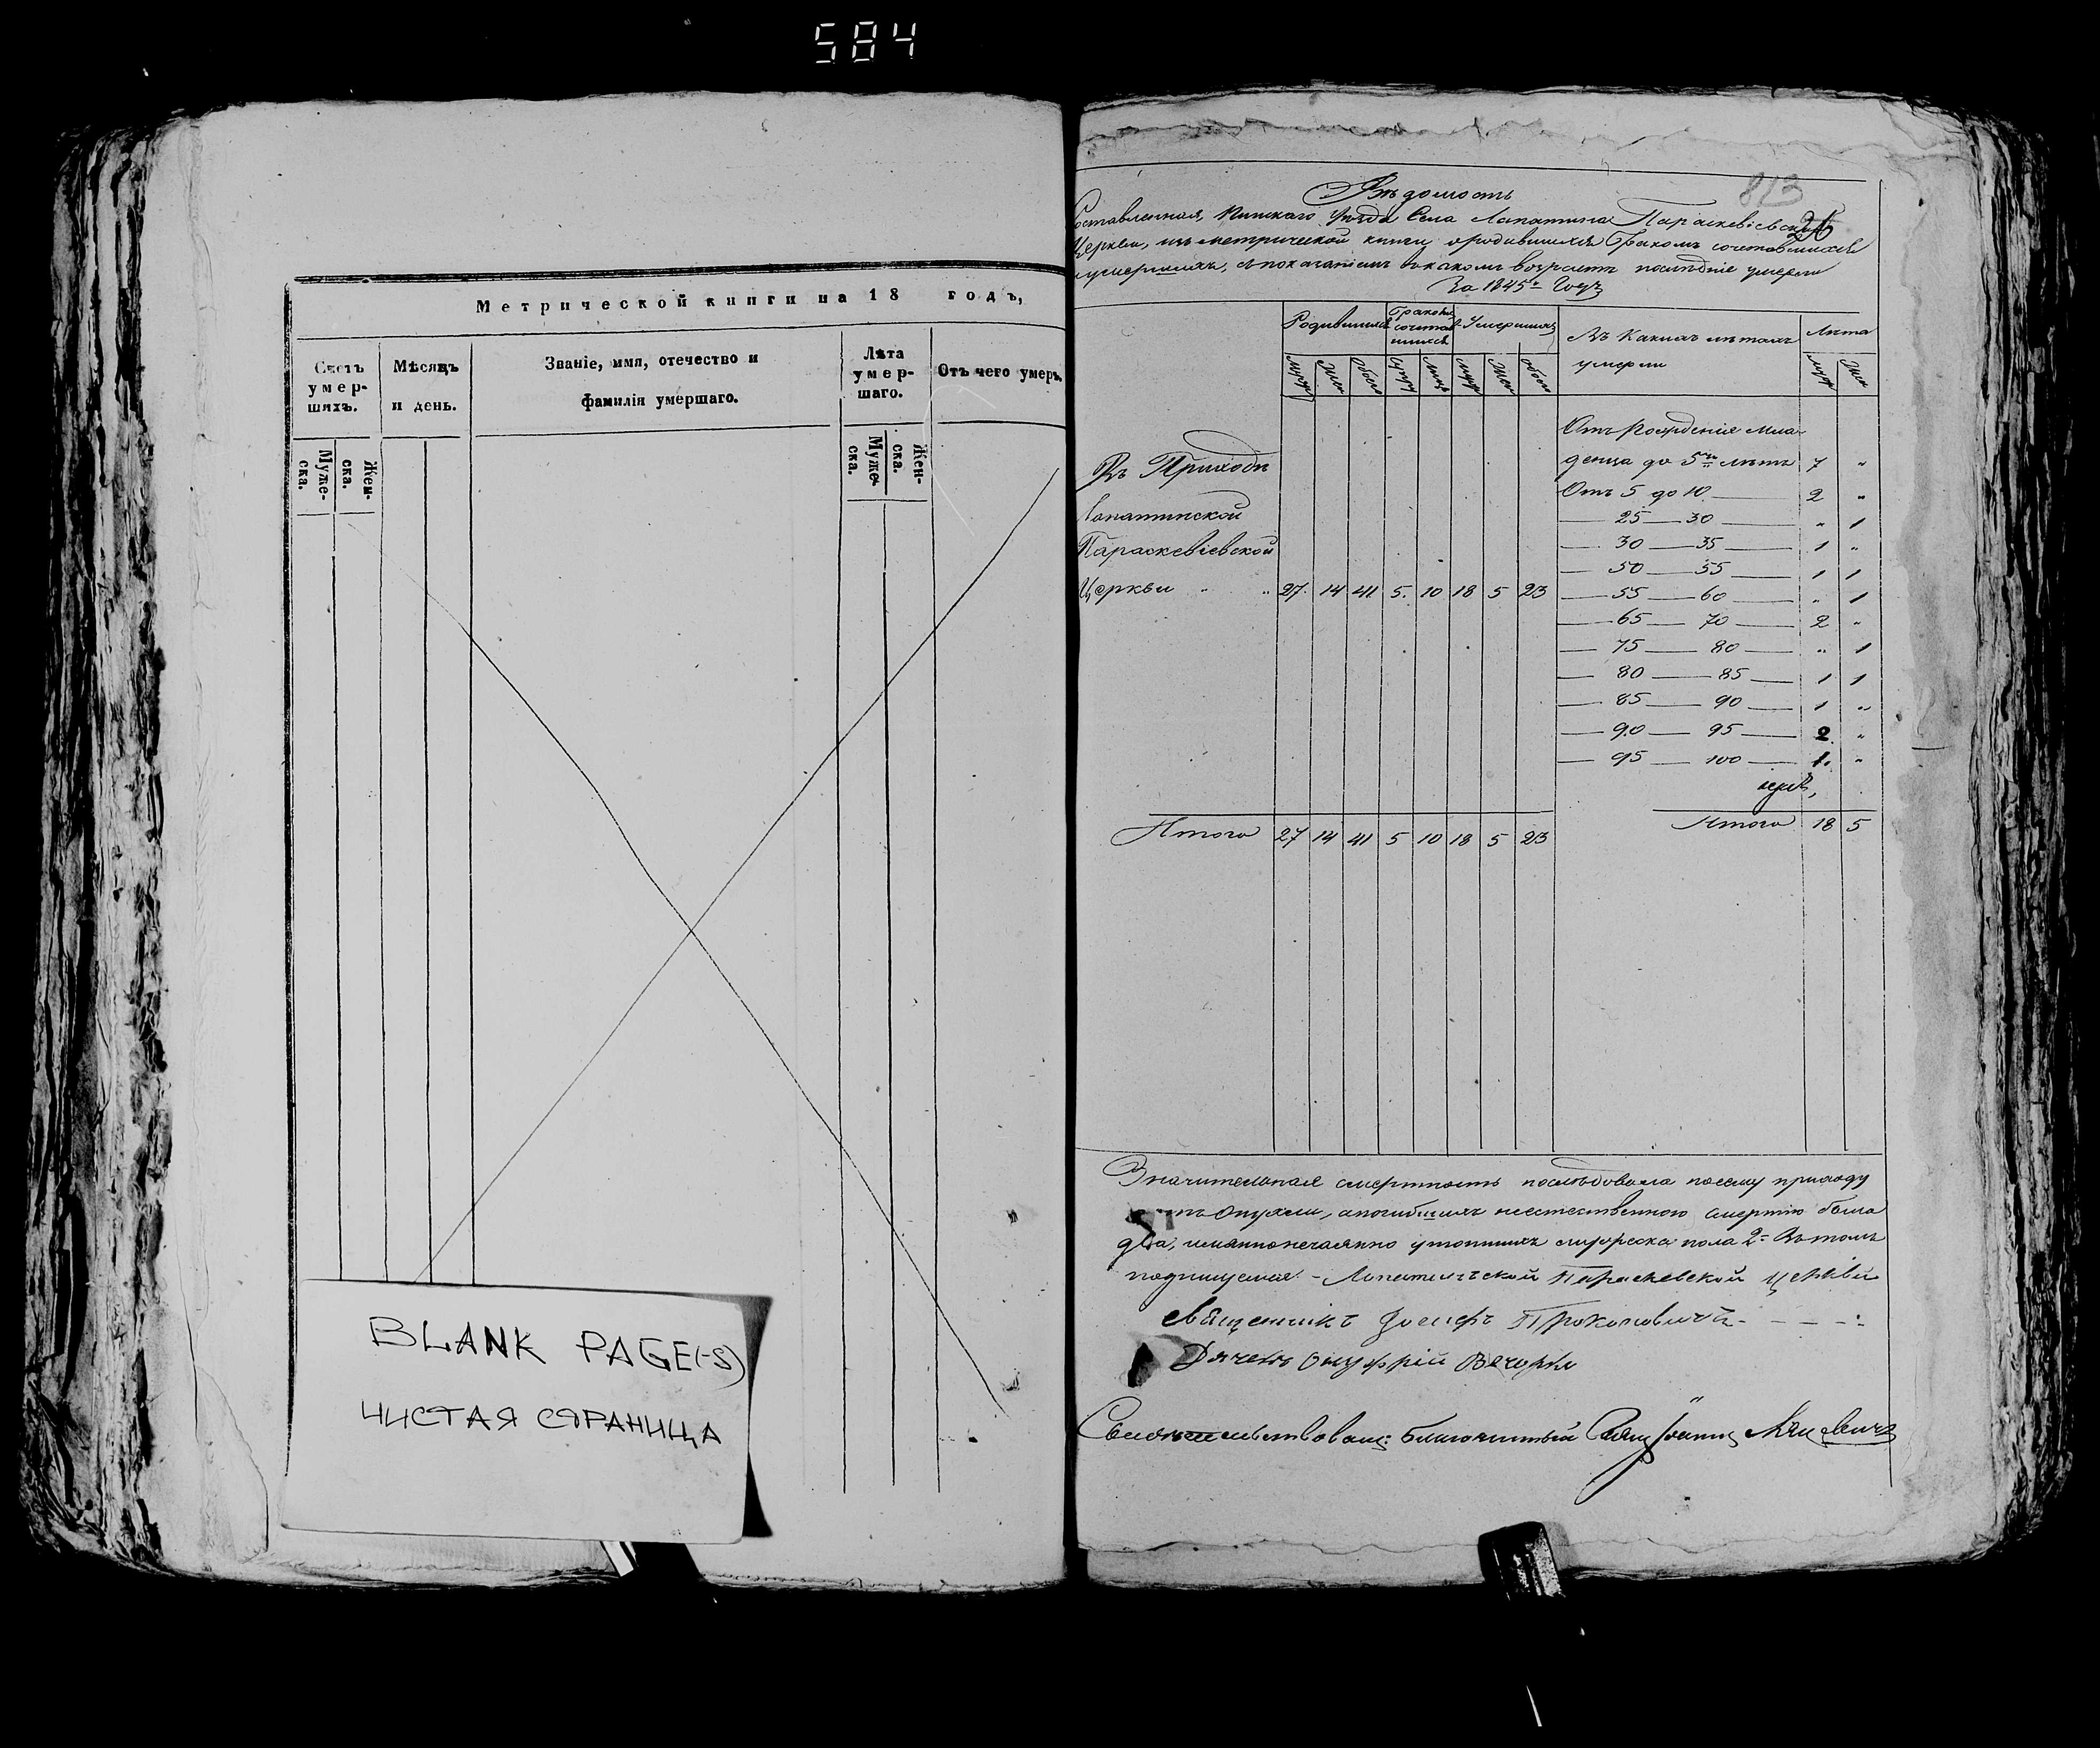 584
Метрической книги на 18 годъ,
Счетъ умер-шихъ.
Мѣсяцъ и день.
Званіе, имя, отечество и фамилія умершаго.
Лѣта умер-шаго.
Отъ чего умеръ.
Муже-ска.
Жен-ска.
Муже-ска.
Жен-ска.
BLANK PAGE(-S)
ЧИСТАЯ СТРАНИЦА
813
26
Вѣдомость
Составленная, Пинскаго уѣзда Села Лопатина Параскевіевской
Церкви, изъ метрической книги о родившихся Бракомъ сочетавшихся
и умершихъ, съ показаніемъ въ какомъ возрастѣ послѣдніе умерли
За 1845й Годъ
Родившихся
Бракомъ сочетав шихся
Умершихъ
Въ какихъ лѣтахъ умерли
Лѣта
муж
Жен
Обоего
Супру
лицъ
муж
Жен
обоего
муж
Жен
Отъ Рожденія мла-
денца до 5ти лѣтъ 7 "
Отъ 5 до 10 2 "
25 — 30 " 1
30 — 35 1 "
50 — 55 1 1
55 — 60 " 1
65 — 70 2 "
75 — 80 " 1
80 — 85 1 1
85 — 90 1 "
90 — 95 2 "
95 — 100 1 "
Въ Приходѣ
Лопатинской
Параскевіевской
Церкви " " 27 14 41 5 10 18 5 23
Итого 27 14 41 5 10 18 5 23
Итого 18 5
Значительная смертность послѣдовала по сему приходу
отъ Опухли, а погибшихъ неестественною смертію было
два, именно нечаянно утопшихъ мужеска пола 2. Въ томъ
подпишуемся - Лопатинской Параскевской церкви
священникъ Іосифъ Прокоповичъ
Дячекъ Онуфрій Вечорко
Свидѣтельствовалъ: Благочинный Свящ Іоаннъ